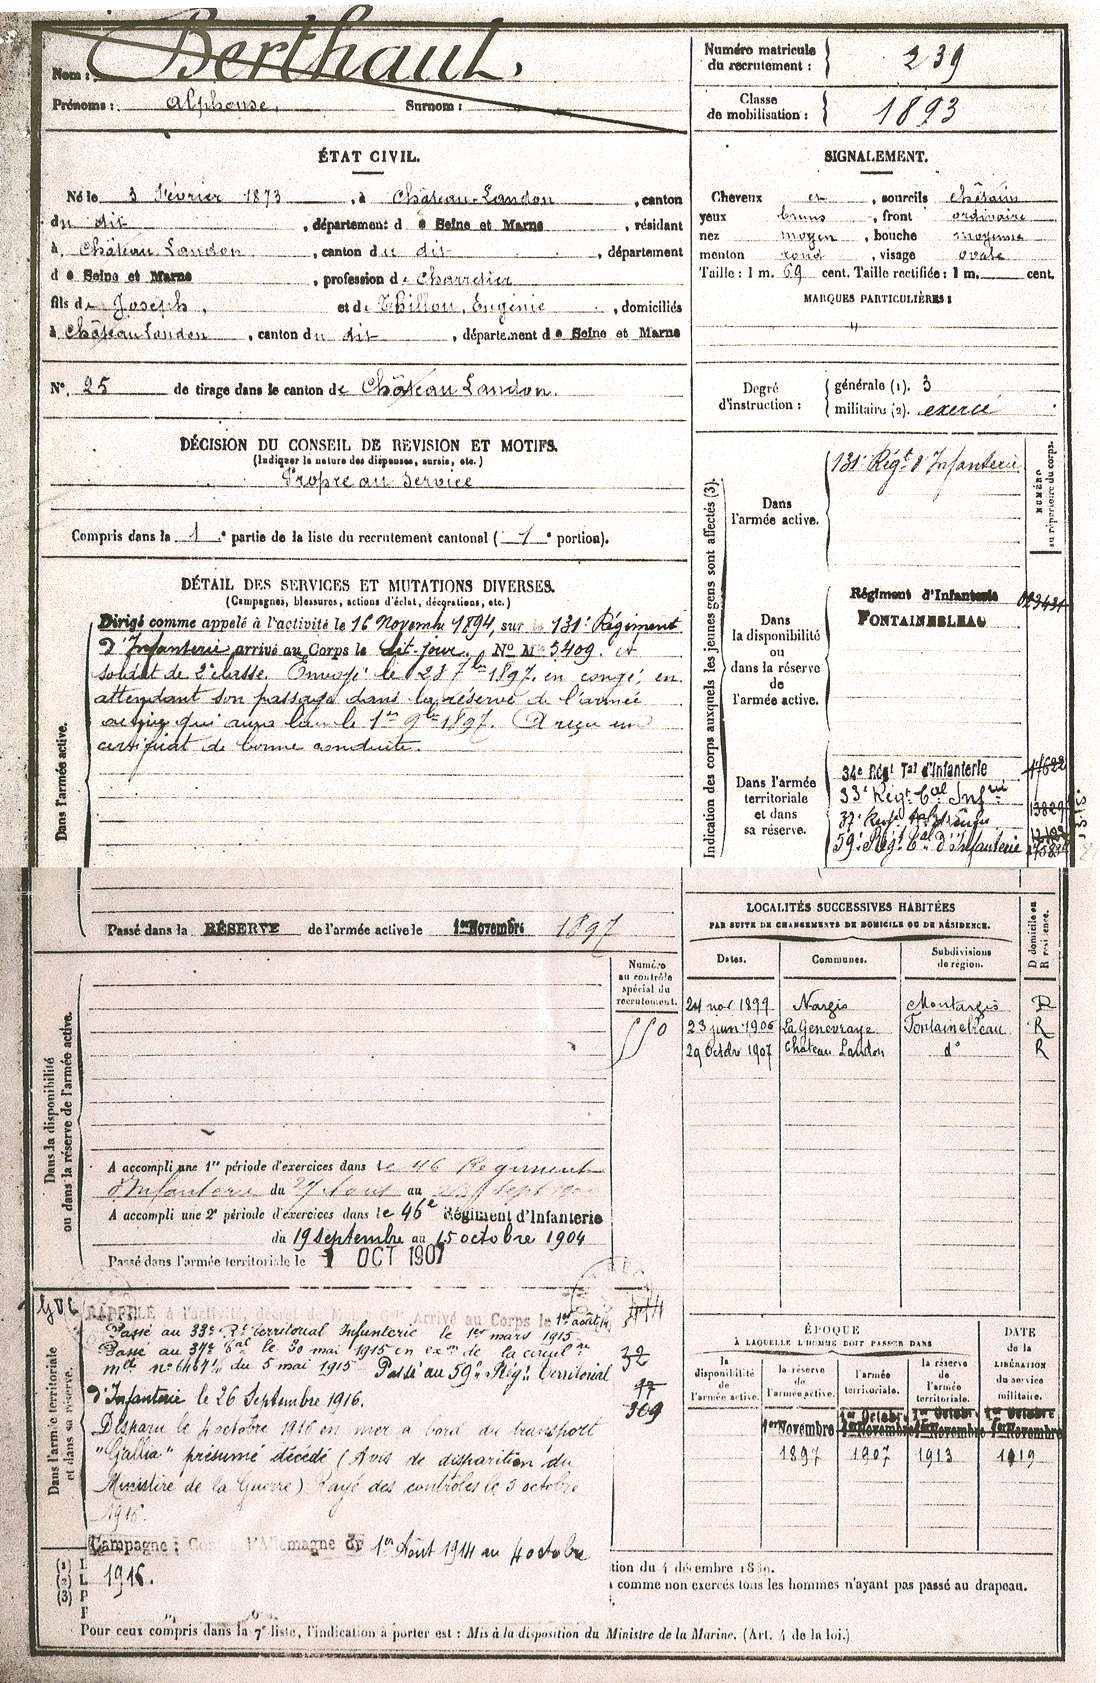 Nom : Berthaut.
Prénoms : Alphonse. Surnom :
Numéro matricule du recrutement : 239
Classe de mobilisation : 1893
ÉTAT CIVIL.
Né le 3 Février 1873, à Château-Landon, canton
du dit, département de Seine et Marne, résidant
à Château Landon, canton du dit, département
de Seine et Marne, profession de Charretier
fils de Joseph, et de Thillou, Eugénie, domiciliés
à Château Landon, canton du dit, département de Seine et Marne
N° 25 de tirage dans le canton de Château Landon.
SIGNALEMENT.
Cheveux et, sourcils châtains
yeux bruns, front ordinaire
nez moyen, bouche moyenne
menton rond, visage ovale
Taille : 1 m. 69 cent. Taille rectifiée : 1 m. cent.
MARQUES PARTICULIÈRES :
"
Degré d'instruction : générale (1). 3
militaire (2). exercé
DÉCISION DU CONSEIL DE REVISION ET MOTIFS.
(Indiquer la nature des dispenses, sursis, etc.)
Propre au service
Compris dans la 1e partie de la liste du recrutement cantonal (1e portion).
DÉTAIL DES SERVICES ET MUTATIONS DIVERSES.
(Campagnes, blessures, actions d'éclat, décorations, etc.)
Dans l'armée active.
Dirigé comme appelé à l'activité le 16 Novembre 1894, sur le 131e Régiment
d'Infanterie arrivé au Corps le dit-jour. No Mle 3409. et
soldat de 2e classe. Envoyé le 28 7bre 1897, en congé, en
attendant son passage dans la réserve de l'armée
active qui aura lieu le 1er 9bre 1897. A reçu un
certificat de bonne conduite.
Indication des corps auxquels les jeunes gens sont affectés (3).
NUMÉRO au répertoire du corps.
Dans l'armée active.
131e Régt d'Infanterie
Dans la disponibilité ou dans la réserve de l'armée active.
Régiment d'Infanterie
FONTAINEBLEAU
Dans l'armée territoriale et dans sa réserve.
34e Régt Tal d'Infanterie
33e Régt Tal Infrie
37e
59e Régt Tal d'Infanterie
Passé dans la RÉSERVE de l'armée active le 1er Novembre 1897
Dans la disponibilité ou dans la réserve de l'armée active.
Numéro au contrôle spécial du recrutement.
550
A accompli une 1re période d'exercices dans le 46 Régiment
d'Infanterie du 27 Août au Sept
A accompli une 2e période d'exercices dans le 46e Régiment d'Infanterie
du 19 septembre au 15 octobre 1904
Passé dans l'armée territoriale le 1 OCT 1907
LOCALITÉS SUCCESSIVES HABITÉES
PAR SUITE DE CHANGEMENTS DE DOMICILE OU DE RÉSIDENCE.
Dates. Communes. Subdivisions de région. D domicile ou R résidence.
24 nov 1899 Nargis Montargis R
23 juin 1906 La Genevraye Fontainebleau R
29 Octbre 1907 Chateau Landon do R
Dans l'armée territoriale et dans sa réserve.
RAPPELÉ à l'activité, décret de Arrivé au Corps le 1er août 14
Passé au 33e Rt territorial Infanterie le 1er mars 1915
Passé au 37e Tal le 30 mai 1915 en exon de la circulre
mlle no 6467 1/4 du 5 mai 1915 Passé au 59e Régt territorial
d'Infanterie le 26 Septembre 1916.
Disparu le 4 octobre 1916 en mer à bord du transport
"Gallia" présumé décédé (Avis de disparition du
Ministère de la Guerre) Rayé des contrôles le 5 octobre
1916.
Campagne : Contre l'Allemagne du 1er Août 1914 au 4 octobre
1916.
32
309
ÉPOQUE
À LAQUELLE L'HOMME DOIT PASSER DANS
la disponibilité de l'armée active. la réserve de l'armée active. l'armée territoriale. la réserve de l'armée territoriale. DATE de la LIBÉRATION du service militaire.
1er Octobre 1er Octobre 1er Octobre
1er Novembre 1er Novembre 1er Novembre 1er Novembre
1897 1907 1913 1919
(1)
(2)
(3)
tion du 4 décembre 1889.
comme non exercés tous les hommes n'ayant pas passé au drapeau.
Pour ceux compris dans la 7e liste, l'indication à porter est : Mis à la disposition du Ministre de la Marine. (Art. 4 de la loi.)